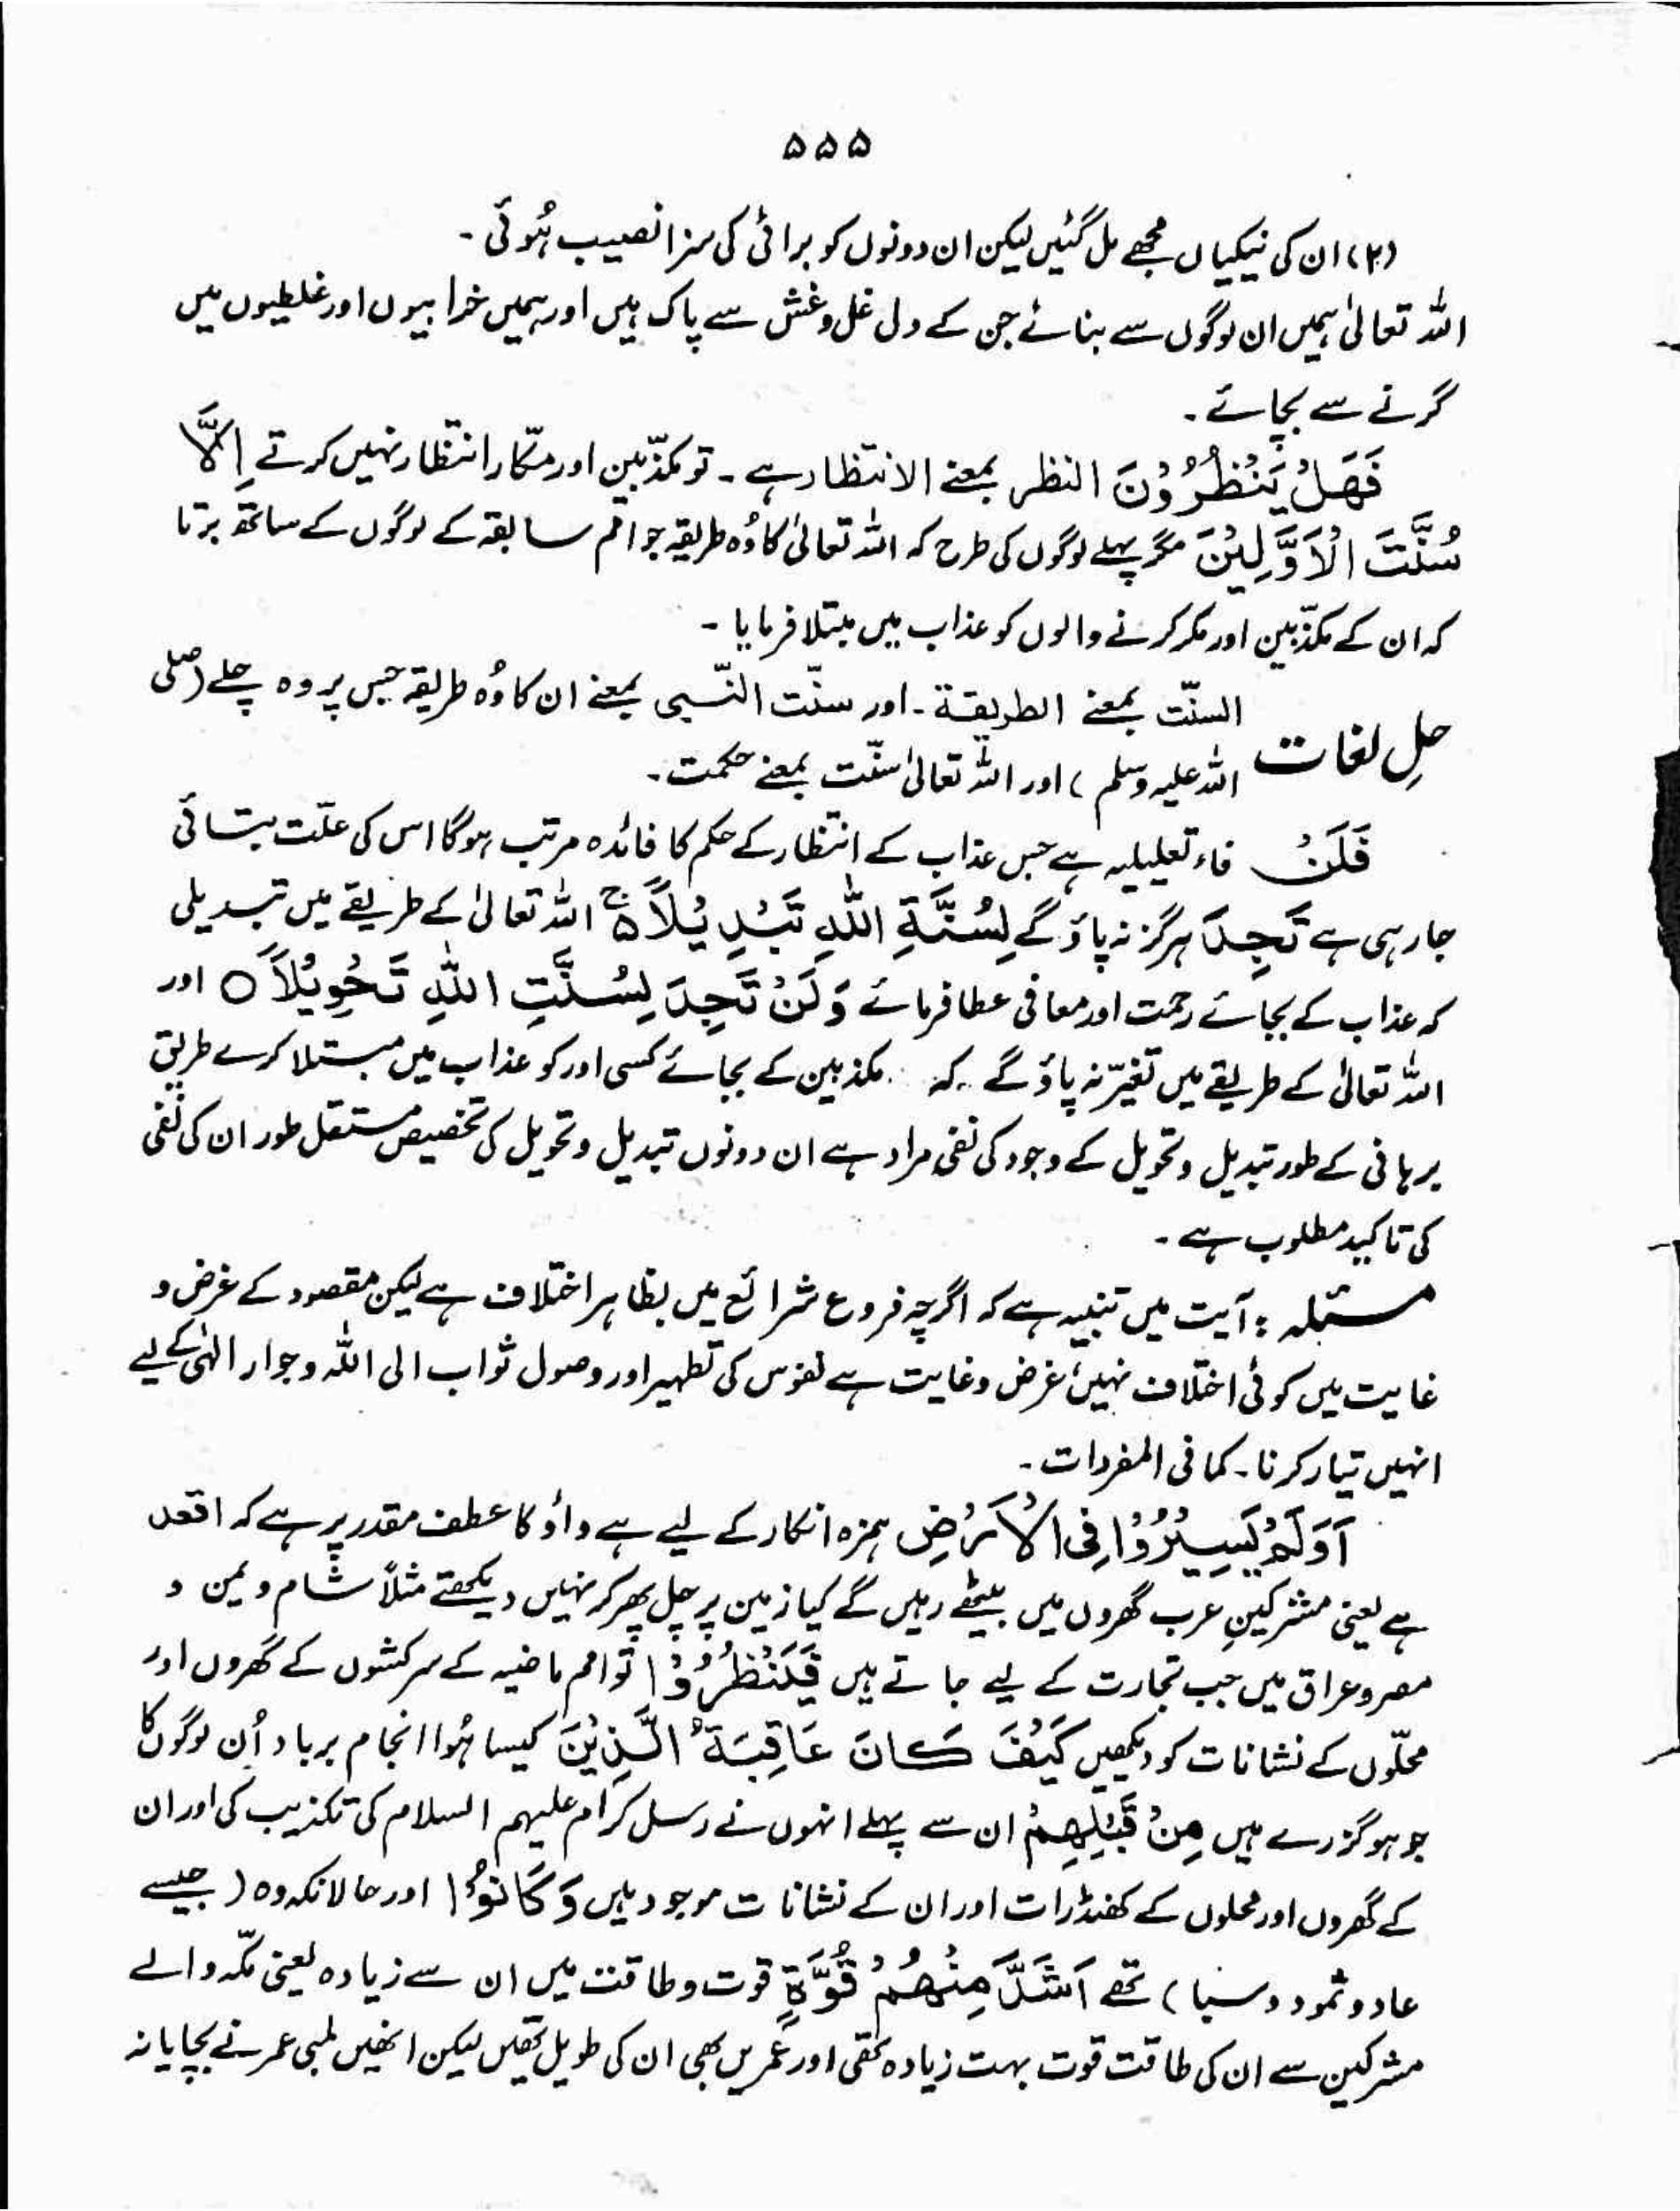 ۵۵۵
(۲) ان کی نیکیاں مجھے مل گئیں لیکن ان دونوں کو برائی کی سزا نصیب ہُوئی ۔
اللہ تعالیٰ ہمیں ان لوگوں سے بنائے جن کے دل غل و غش سے پاک ہیں اور ہمیں خرابیوں اور غلطیوں میں
گرنے سے بچائے ۔
فَهَلْ يَنْظُرُوْنَ النظر بمعنے الانتظار ہے ۔ تو مکذّبین اور مکّار انتظار نہیں کرتے اِلَّا
سُنَّتَ الْاَوَّلِيْنَ مگر پہلے لوگوں کی طرح کہ اللہ تعالیٰ کا وُہ طریقہ جو امم سابقہ کے لوگوں کے ساتھ برتا
کہ ان کے مکذّبین اور مکر کرنے والوں کو عذاب میں مبتلا فرمایا ۔
السنّت بمعنے الطریقۃ ۔ اور سنّت النّبی بمعنے ان کا وُہ طریقہ جس پر وہ چلے (صلی
حلِ لغات اللہ علیہ وسلم) اور اللہ تعالیٰ سنّت بمعنے حکمت ۔
فَلَنْ فاء تعلیلیہ ہے جس عذاب کے انتظار کے حکم کا فائدہ مرتب ہوگا اس کی علّت بتائی
جا رہی ہے تَجِدَ ہرگز نہ پاؤ گے لِسُنَّةِ اللّٰهِ تَبْدِيْلًا ۵ ج اللہ تعالیٰ کے طریقے میں تبدیلی
کہ عذاب کے بجائے رحمت اور معافی عطا فرمائے وَ لَنْ تَجِدَ لِسُنَّتِ اللّٰهِ تَحْوِيْلًا ○ اور
اللہ تعالیٰ کے طریقے میں تغیّر نہ پاؤ گے کہ مکذبین کے بجائے کسی اور کو عذاب میں مبتلا کرے طریق
برہانی کے طور تبدیل و تحویل کے وجود کی نفی مراد ہے ان دونوں تبدیل و تحویل کی تخصیص مستقل طور ان کی نفی
کی تاکید مطلوب ہے ۔
مسئلہ : آیت میں تنبیہ ہے کہ اگرچہ فروع شرائع میں بظاہر اختلاف ہے لیکن مقصود کے غرض و
غایت میں کوئی اختلاف نہیں غرض و غایت ہے نفوس کی تطہیر اور وصول ثواب الی اللہ و جوار الٰہی کے لیے
انہیں تیار کرنا ۔ کما فی المفردات ۔
اَوَلَمْ يَسِيْرُوْا فِى الْاَرْضِ ہمزہ انکار کے لیے ہے واؤ کا عطف مقدر پر ہے کہ اقعد
ہے یعنی مشرکینِ عرب گھروں میں بیٹھے رہیں گے کیا زمین پر چل پھر کر نہیں دیکھتے مثلاً شام و یمن و
مصر و عراق میں جب تجارت کے لیے جاتے ہیں فَيَنْظُرُوْا تو امم ماضیہ کے سرکشوں کے گھروں اور
محلّوں کے نشانات کو دیکھیں كَيْفَ كَانَ عَاقِبَةُ الَّذِيْنَ کیسا ہُوا انجام برباد اُن لوگوں کا
جو ہو گزرے ہیں مِنْ قَبْلِهِمْ ان سے پہلے انہوں نے رسل کرام علیہم السلام کی تکذیب کی اور ان
کے گھروں اور محلوں کے کھنڈرات اور ان کے نشانات موجود ہیں وَ كَانُوْا اور حالانکہ وہ (جیسے
عاد و ثمود و سبا) تھے اَشَدَّ مِنْهُمْ قُوَّةً قوت و طاقت میں ان سے زیادہ یعنی مکّہ والے
مشرکین سے ان کی طاقت قوت بہت زیادہ تھی اور عمریں بھی ان کی طویل تھیں لیکن انھیں لمبی عمر نے بچایا نہ